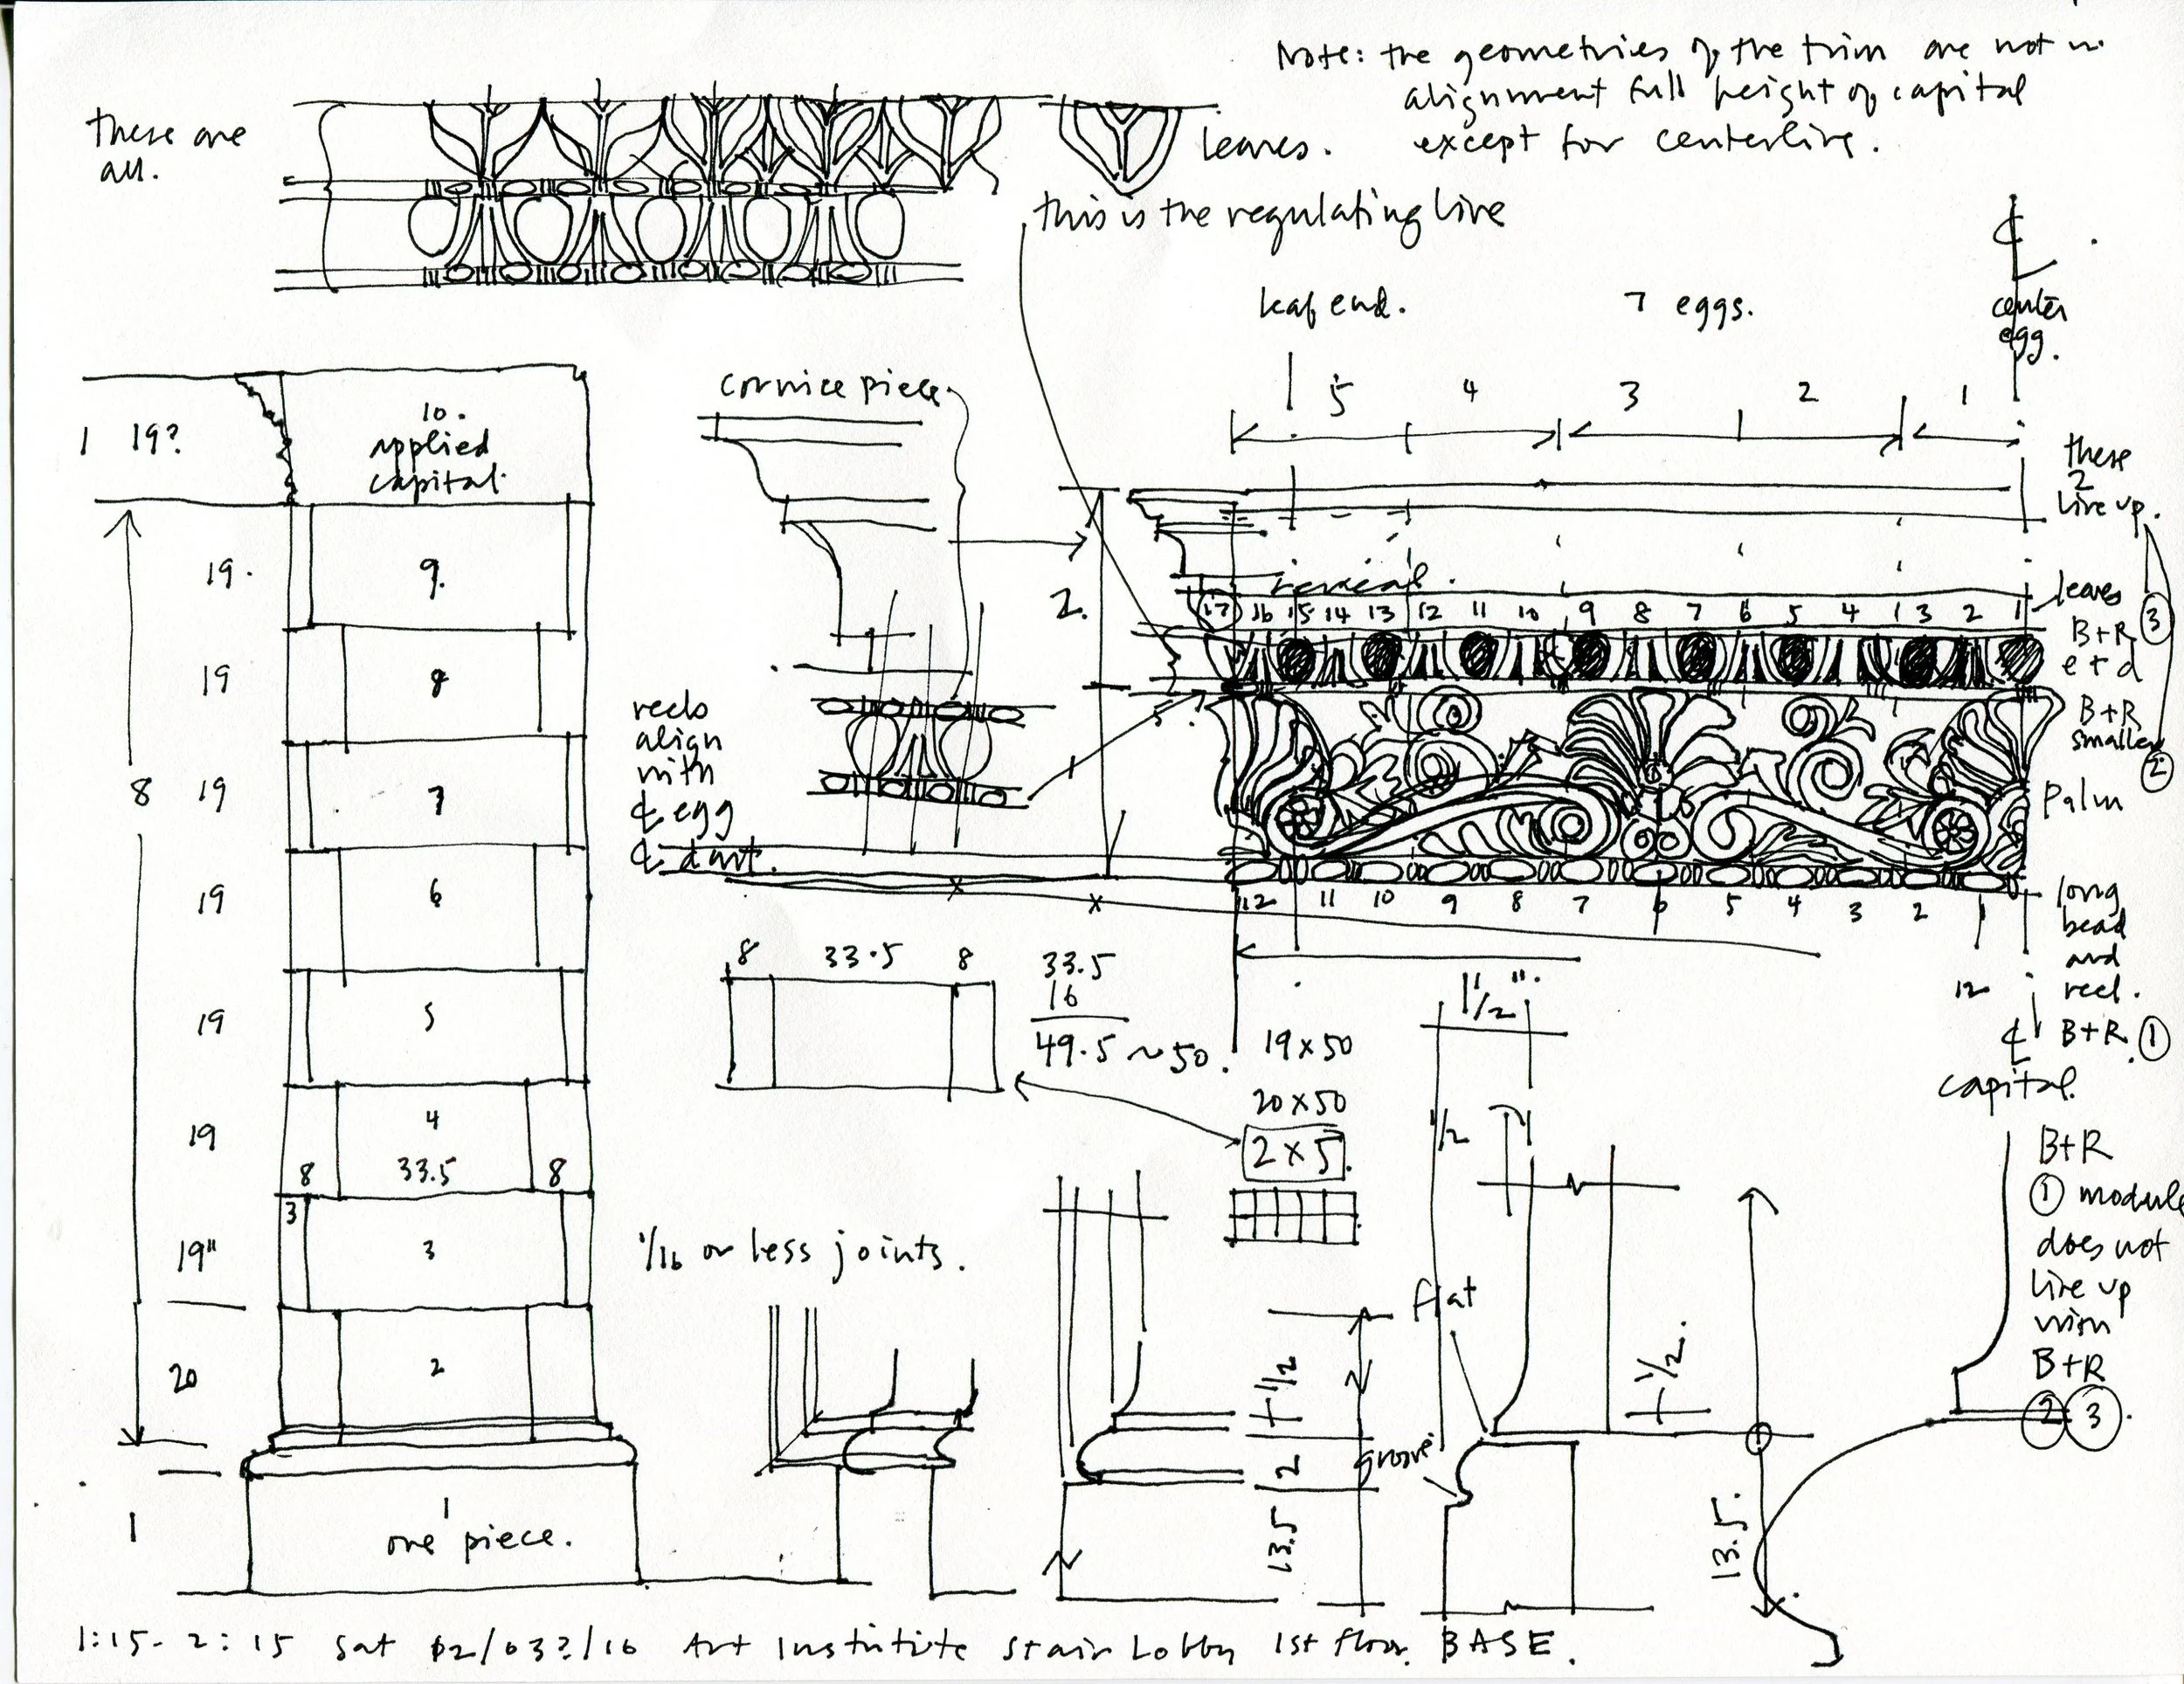 Note: the geometries of the trim are not in
alignment full height of capital
except for centerline.
these are
all.
leaves.
this is the regulating line
℄
center
egg.
leaf end.
7 eggs.
5 4 3 2 1
cornice piece
1 19?
10.
applied
capital.
these
2
line up.
19.
9.
2.
17 16 15 14 13 12 11 10 9 8 7 6 5 4 3 2 1
leaves
B+R ③
e + d
19
8
reels
align
with
℄ egg
℄ dart.
1
B+R
smaller
②
palm
8
19
7
19
6
12 11 10 9 8 7 6 5 4 3 2 1
long
bead
and
reel.
12
℄ B+R. ①
capital.
8 33.5 8
33.5
16
49.5 ~ 50.
19x50
20x50
2x5.
1 1/2".
1/2
19
5
19
4
8 33.5 8
3
19"
3
1/16 or less joints.
B+R
① module
does not
line up
with
B+R
② ③.
flat
groove
20
2
1/2
2
13.5
1/2.
13.5.
1
1
one piece.
1:15- 2:15 Sat 02/03?/16 Art Institute Stair Lobby 1st floor. BASE.